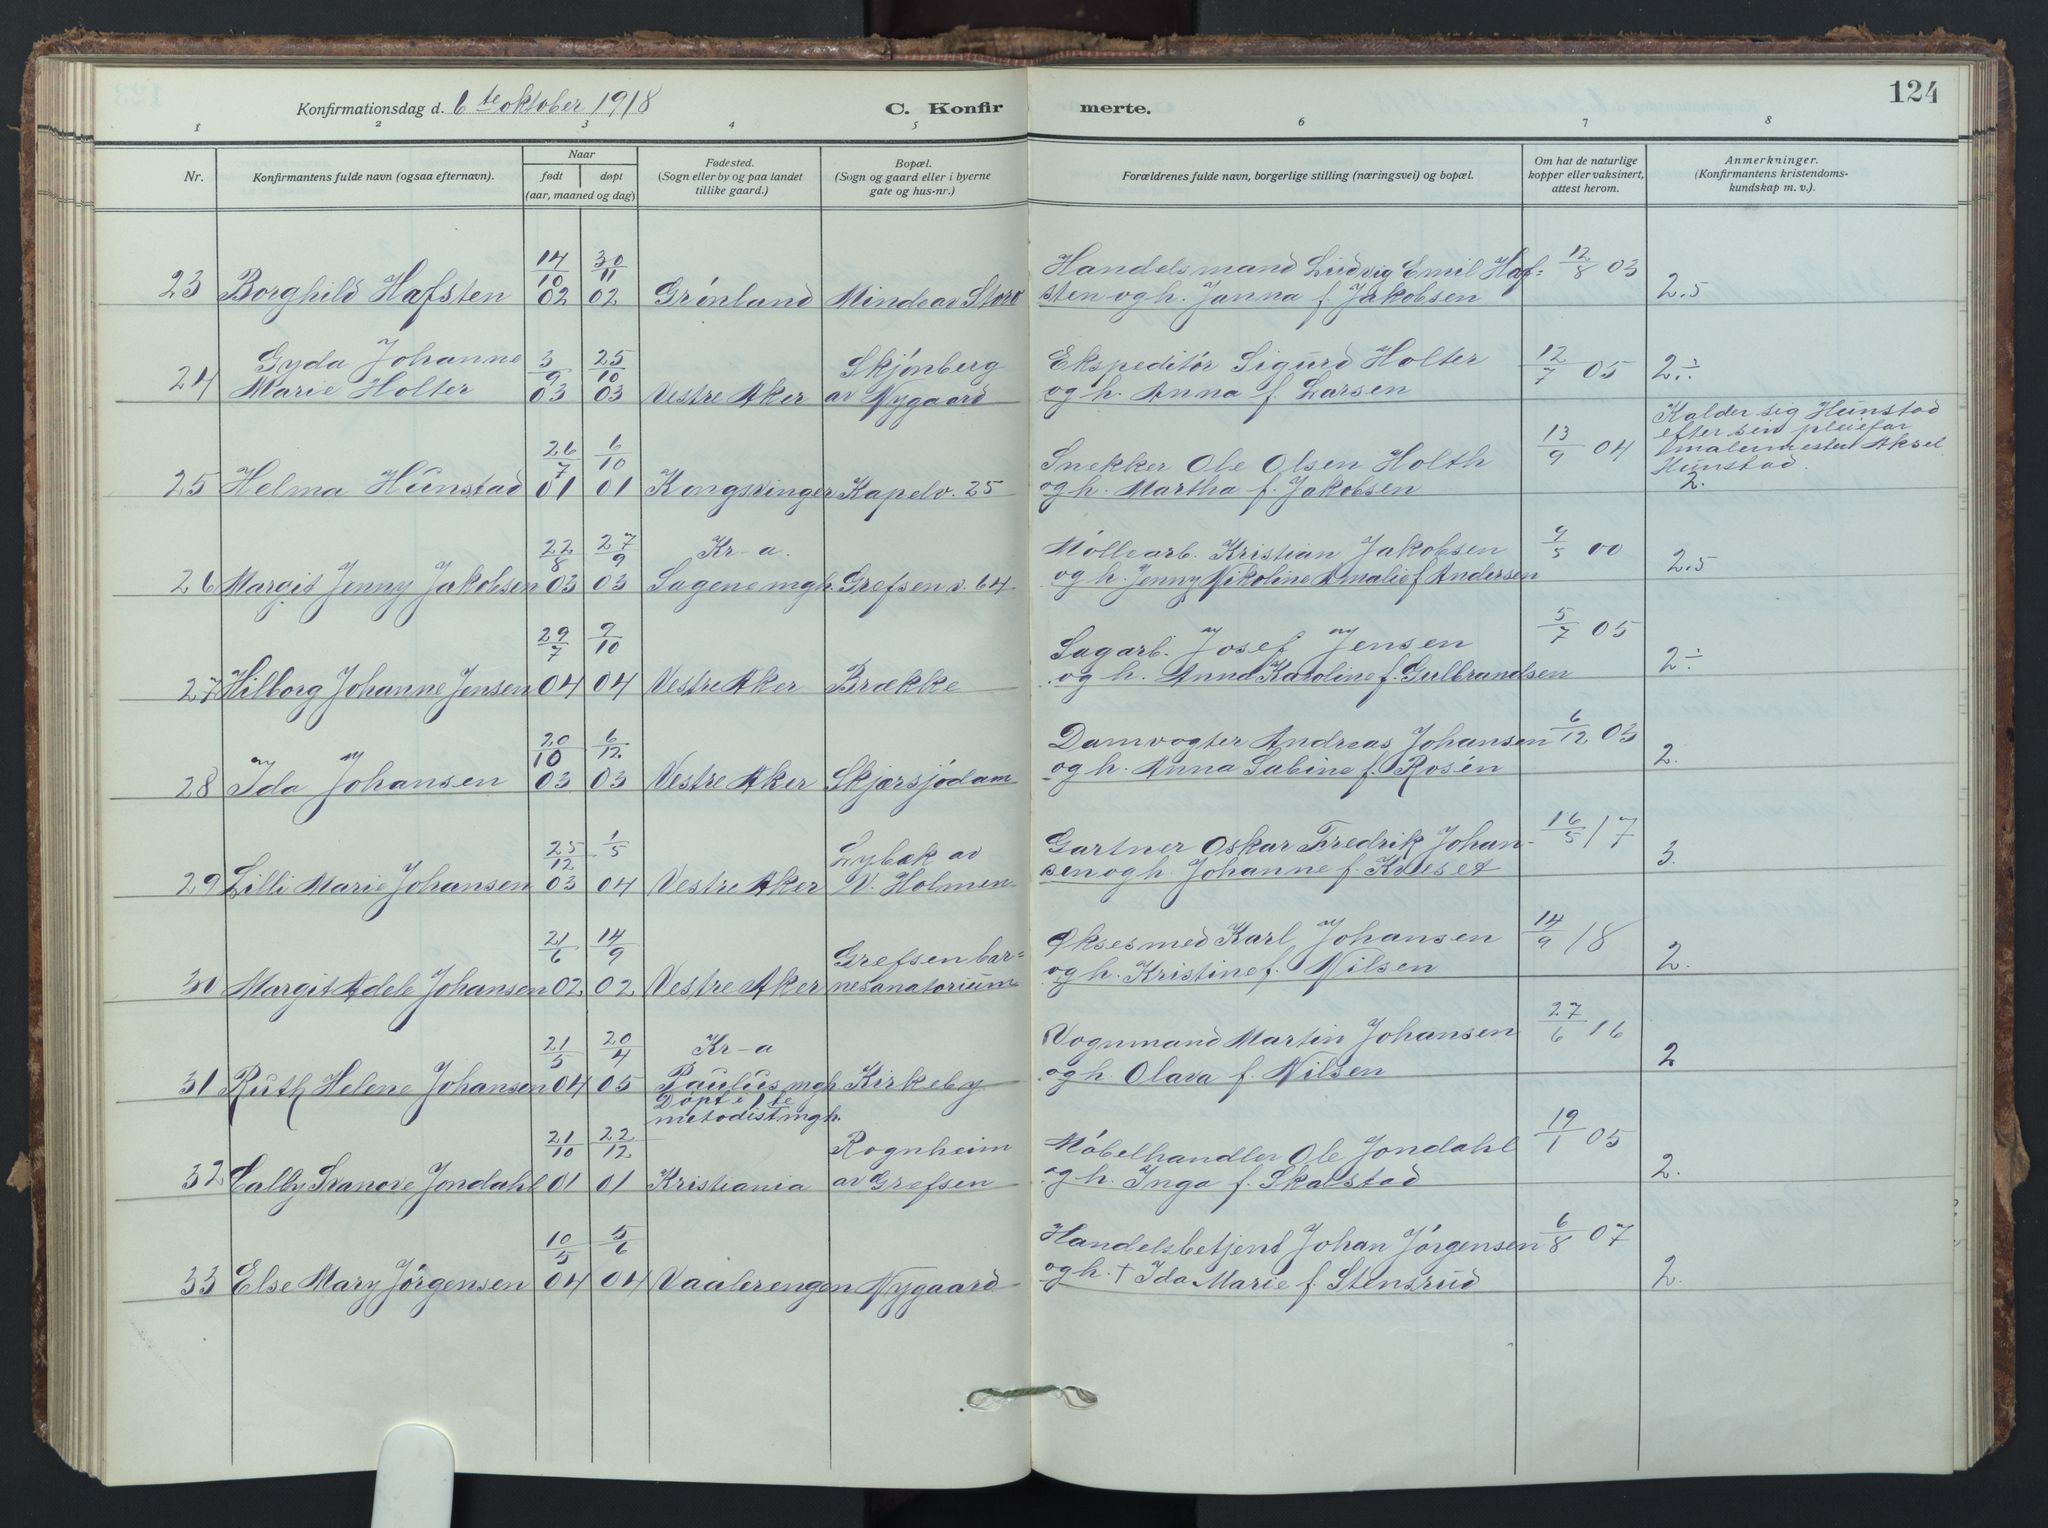 124
Konfirmationsdag d. 6te oktober 1918
C. Konfirmerte.
1 2 3 4 5 6 7 8
Nr.
Konfirmantens fulde navn (ogsaa efternavn).
Naar
født
døpt
(aar, maaned og dag)
Fødested.
(Sogn eller by og paa landet
tillike gaard.)
Bopæl.
(Sogn og gaard eller i byerne
gate og hus-nr.)
Forældrenes fulde navn, borgerlige stilling (næringsvei) og bopæl.
Om hat de naturlige
kopper eller vaksinert,
attest herom.
Anmerkninger.
(Konfirmantens kristendoms-
kundskap m. v.)
23 Borghild Hafsten 14/10 02 30/11 02 Grønland Minde av Storo
Handelsmand Ludvig Emil Haf=
sten og h. Janna f. Jakobsen 12/8 03 2.5
24 Gyda Johanne
Marie Holter 3/9 03 25/10 03 Vestre Aker Skjønberg
av Nygaard
Ekspeditør Sigurd Holter
og h. Anna f. Larsen 12/7 05 2÷
25 Helma Hunstad 26/7 01 6/10 01 Kongsvinger Kapelv. 25
Snekker Ole Olsen Holth
og h. Martha f. Jakobsen 13/9 04
Kalder sig Hunstad
efter sin pleiefar
malermester Aksel
Hunstad.
2.
26 Margit Jenny Jakobsen 22/8 03 27/9 03 Kr-a.
Sagene mgh. Grefsenv. 64
Møllearb. Kristian Jakobsen
og h. Jenny Nikoline Amalie f Andersen 9/5 00 2.5
27 Hilborg Johanne Jensen 29/7 04 9/10 04 Vestre Aker Brække
Sagarb. Josef Jensen
og h. Anna Karoline f. Gulbrandsen 5/7 05 2÷
28 Ida Johansen 20/10 03 6/12 03 Vestre Aker Skjærsjødam
Damvogter Andreas Johansen
og h. Anna Sabine f. Rosén 6/12 03 2.
29 Lilli Marie Johansen 25/12 03 1/5 04 Vestre Aker Lybæk av
V. Holmen
Gartner Oskar Fredrik Johan-
sen og h. Johanne f. 16/5 17 3.
30 Margit Adele Johansen 21/6 02 14/9 02 Vestre Aker Grefsen bar=
nesanatorium
Øksesmed Karl Johansen
og h. Kristine f. Nilsen 14/9 18 2.
31 Ruth Helene Johansen 21/5 04 20/4 05 Kr-a
Paulus mgh. Kirkeby
Døpt i 1te
metodistmgh.
Vognmand Martin Johansen
og h. Olava f. Nilsen 27/6 16 2
32 Calby Svanove Jondahl 21/10 01 22/12 01 Kristiania Rognheim
av Grefsen
Møbelhandler Ole Jondahl
og h. Inga f. Skalstad 19/1 05 2.
33 Else Mary Jørgensen 10/5 04 5/6 04 Vaalerengen Nygaard
Handelsbetjent Johan Jørgensen
og h. † Ida Marie f. Stensrud 6/8 07 2.